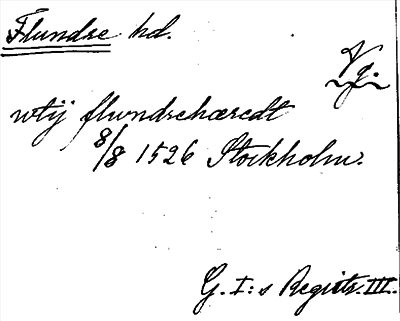 Flundre hd.
Vg.
wtij flwndrehæredt
8/8 1526 Stockholm.
G. I:s Registr. III.